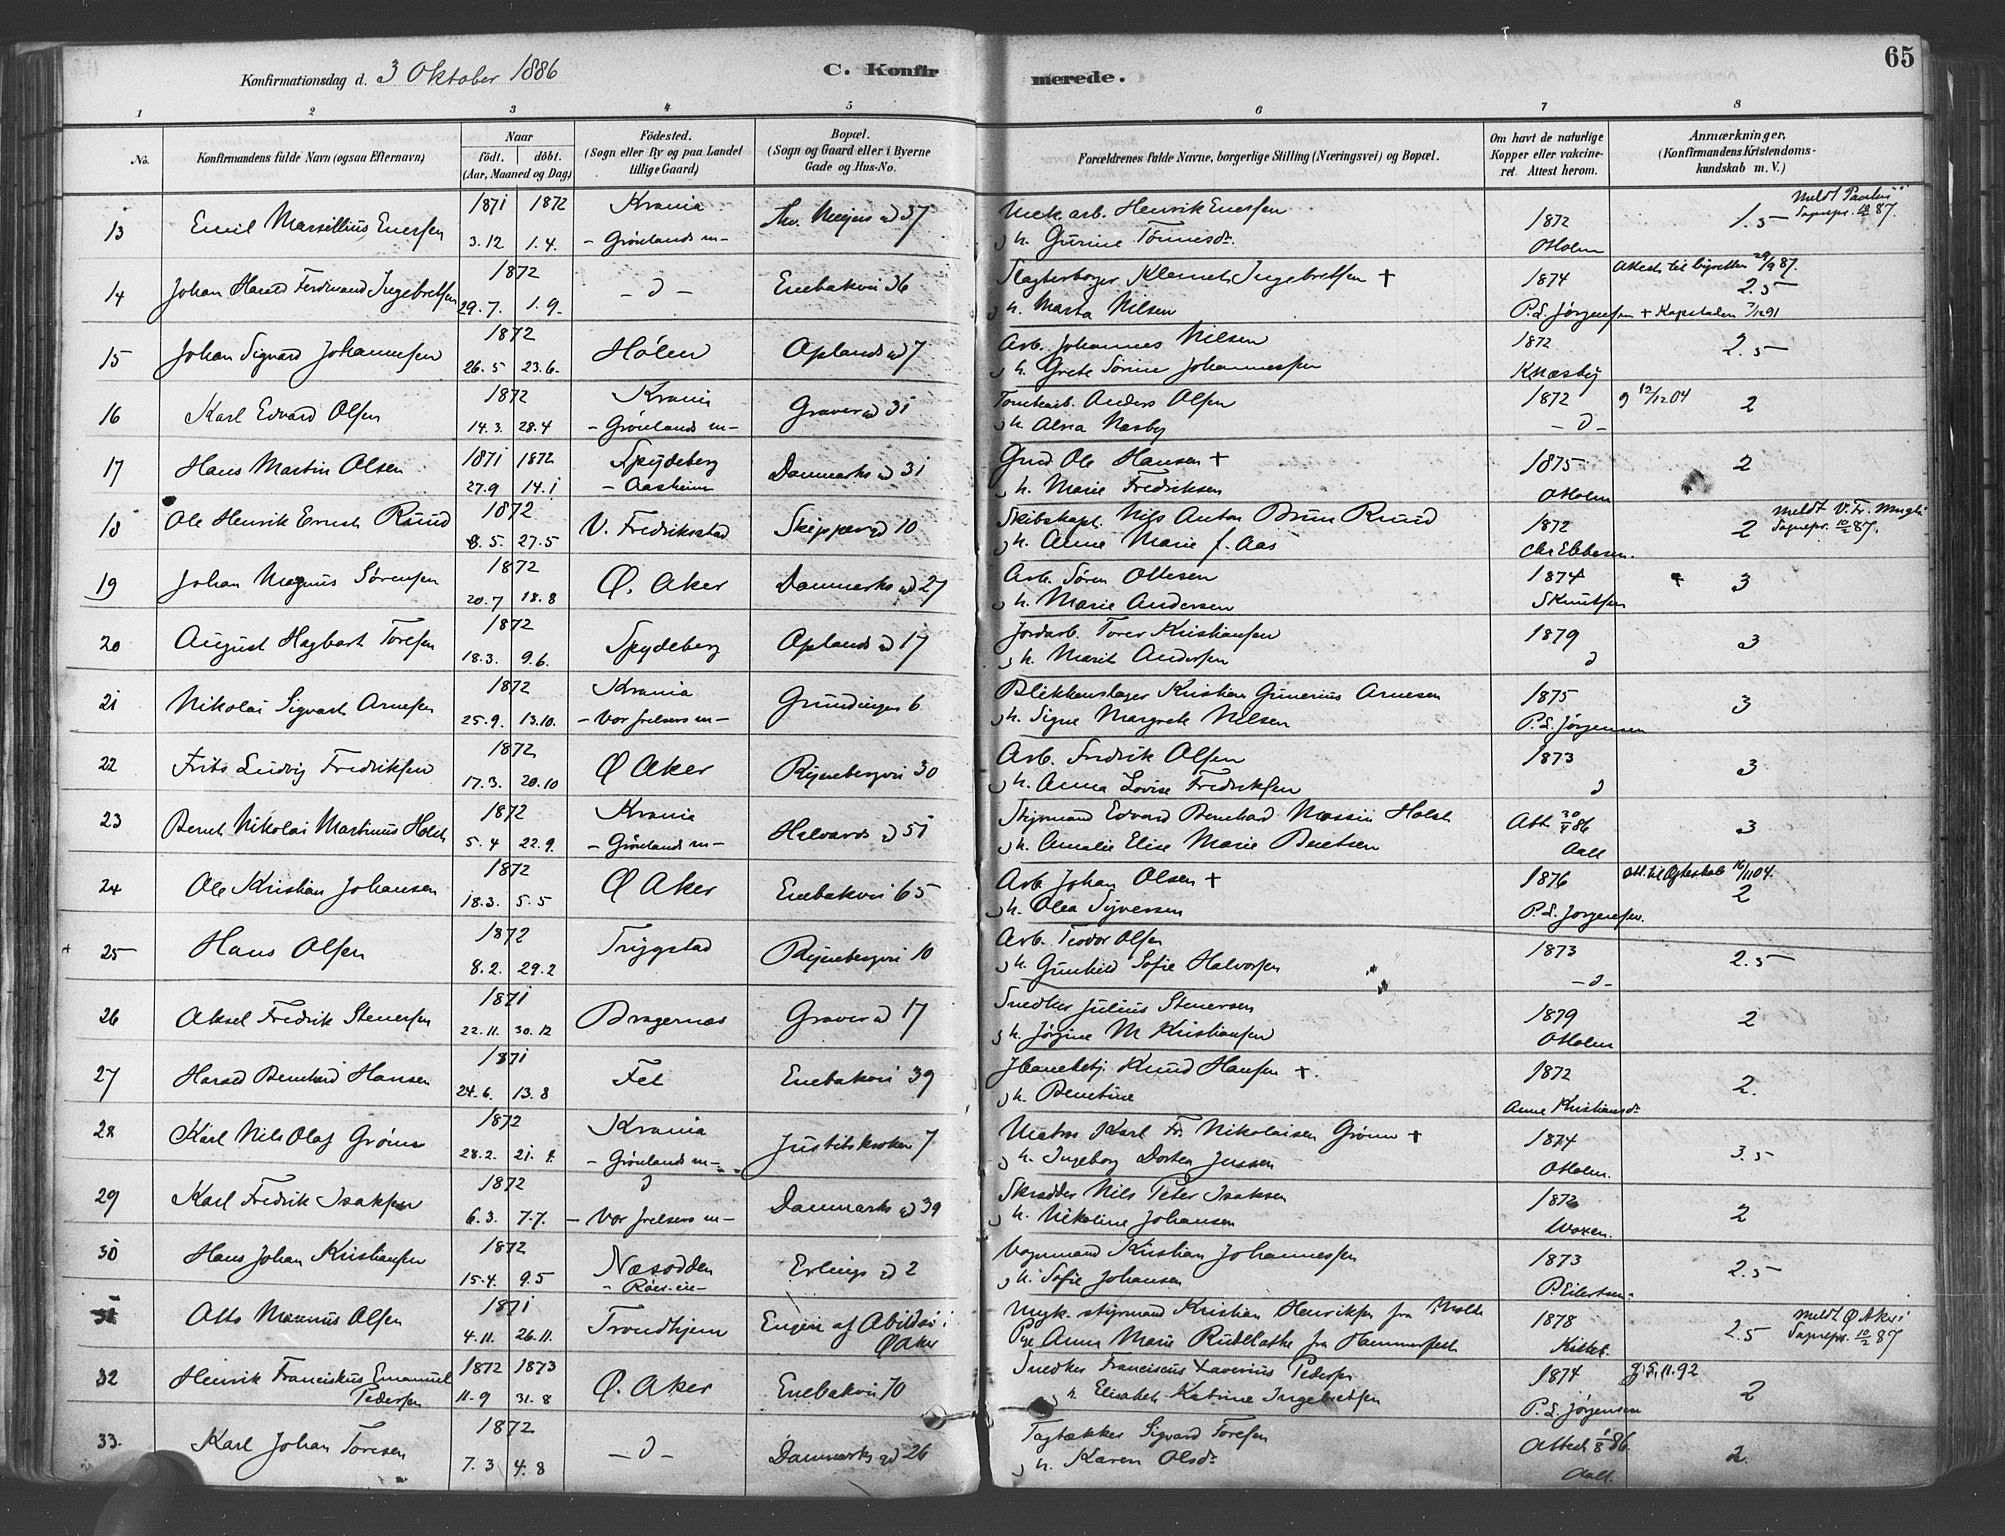 65
Konfirmationsdag d. 3 Oktober 1886
C. Konfirmerede.
1 2 3 4 5 6 7 8
No. Konfirmandens fulde Navn (ogsaa Efternavn) Naar født. døbt. (Aar, Maaned og Dag) Fødested. (Sogn eller By og paa Landet tillige Gaard) Bopæl. (Sogn og Gaard eller i Byerne Gade og Hus-No. Forældrenes fulde Navne, borgerlige Stilling (Næringsvei) og Bopæl. Om havt de naturlige Kopper eller vakcineret. Attest herom. Anmærkninger, (Konfirmandens Kristendomskundskab m. V.)
13 Emil Marsillius Enersen 1871 3.12 1872 1.4. Krania - Grønlands m- Thv. Meyers gd 37 Mek. arb. Henrik Enersen 1872 1.5
h. Gurine Tønnesdr. OHolm
14 Johan Harald Ferdinand Ingebretsen 1872 29.7. 1.9. - d - Enebakvei 36 Slagterborger Klemet Ingebretsen + 1874 2.5
h. Marta Nilsen P.L. Jørgensen
15 Johan Sigvard Johannesen 1872 26.5 23.6. Hølen Oplands gd 7 Arb. Johannes Nilsen 1872 2.5
h. Grete Sørine Johannessen Knæsby
16 Karl Edvard Olsen 1872 14.3. 28.4 Krania - Grønlands m- Graver gd 31 Anders Olsen 1872 2
h. Alva Næsby - d -
17 Hans Martin Olsen 1871 27.9 1872 14.1 Spydeberg - Aasheim Danmarks gd 31 Gmd Ole Hansen + 1875 2
h. Marie Fredriksen OHolm
18 Ole Henrik Ernst Ruud 1872 8.5. 27.5 V. Fredriksstad Skipper gd 10 Skibskapt. Nils Anton Brun Ruud 1872 2
h. Anne Marie f. Aas Chr Ebbesen.
19 Johan Magnus Sørensen 1872 20.7 18.8 Ø. Aker Danmarks gd 27 Arb. Søren Ottesen 1874 3
h. Marie Andersen SKnutsen
20 August Hagbart Toresen 1872 18.3. 9.6. Spydeberg Oplands gd 17 Jordarb. Tores Kristiansen 1879 3
h. Marit Andersen d
21 Nikolai Sigvart Arnesen 1872 25.9. 13.10. Krania - Vor frelsers m- Grundingen 6 Blikkenslager Kristian Gunerius Arnesen 1875 3
h. Signe Margrete Nilsen P.L. Jørgensen
22 Frits Ludvig Fredriksen 1872 17.3. 20.10 Ø Aker Ryenbergvei 30 Arb. Fredrik Olsen 1873 3
h. Anna Lovise Fredriksen d
23 Bernt Nikolai Martinus Holst 1872 5.4 22.9. Krania - Grønlands m- Halvards gd 51 Styrmand Edvard Bernhard Holst Att. 30/9 86 3
h. Amalie Elise Marie Berntsen Aall
24 Ole Kristian Johansen 1872 18.3. 5.5 Ø Aker Enebakvei 65 Arb Johan Olsen + 1876 2
h. Olea Syversen P.L. Jørgensen.
25 Hans Olsen 1872 8.2. 29.2 Trygstad Ryenbergvei 10 Arb. Teodor Olsen 1873 2.5
h. Gunhild Sofie Halvorsen - d -
26 Aksel Fredrik Stenersen 1871 22.11. 30.12 Bragernæs Graver gd 17 Snedker Julius Stenersen 1879 2
h. Jørgine M Kristiansen OHolm
27 Harald Bernhard Hansen 1871 24.6. 13.8 Fet Enebakvei 39 Knud Hansen +. 1872 2.
h. Berntine Anne Kristiansdr
28 Karl Nils Olaf Grønn 1872 28.2. Krania - Grønlands m- Justitskroken 7 Matros Karl Fr. Nikolaisen Grønn + 1874 3.5
h. Ingeborg Dortea Jenssen OHolm.
29 Karl Fredrik Isaksen 1872 6.3. 7.7. d - Vor frelsers m- Danmarks gd 39 Skrædder Nils Peter Isaksen 1872 2
h. Nikoline Johansen Woxen.
30 Hans Johan Kristiansen 1872 15.4. 9.5 Næsodden Erlings gd 2 Vognmand Kristian Johannessen 1873 2.5
h. Sofie Johansen P.Eilertsen
31 Otto Magnus Olsen 1871 4.11. 26.11. Trondhjem Engen af Abildsø i ØAker Ungk. styrmand Kristian Henriksen fra Molde 1878 2.5
Pge Anna Marie fra Hammerfest
32 Henrik Franciskus Emanuel Pedersen 1872 11.9 1873 31.8 Ø. Aker Enebakvei 70 Snedker Franciscus Xaverius Pedersen 1874 2
h. Elisabeth Katrine Ingebretsen P.L. Jørgensen
33. Karl Johan Toresen 1872 7.3 4.8 - d - Danmarks gd 26 Tagtækker Sigvard Toresen 2
h. Karen Olsdr. Aall.